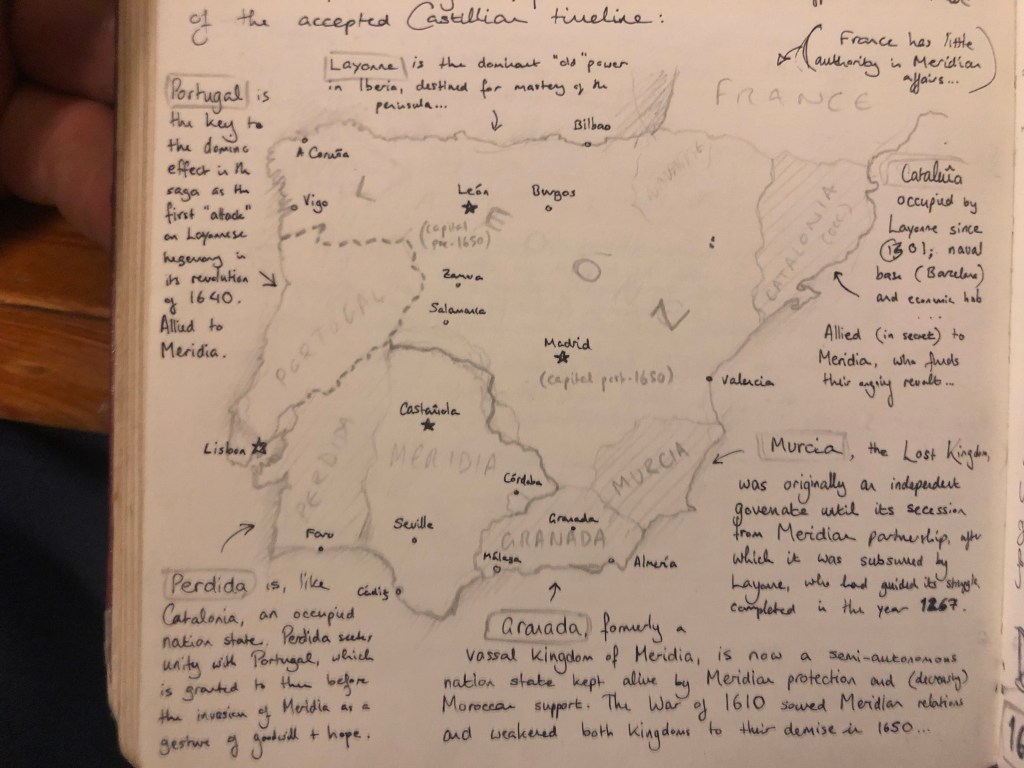 of the accepted Castillian timeline:
Layonne is the dominant "old" power
in Iberia, destined for mastery of the
peninsula...
(France has little
authority in Meridian
affairs...)
Portugal is
the key to
the domino
effect in the
saga as the
first "attack"
on Layonnese
hegemony in
its revolution
of 1640.
Allied to
Meridia.
FRANCE
Bilbao
A Coruña
Vigo
León
(capital
pre-1650)
Burgos
L E O N Z
Salamanca
Madrid
(capital post-1650)
PORTUGAL
CATALONIA
(occ)
Valencia
Castañola
Lisbon
PERDIDA
MERIDIA
MURCIA
Córdoba
Seville
Granada
GRANADA
Faro
Málaga
Almería
Cádiz
Cataluña
occupied by
Layonne since
1301; naval
base (Barcelona)
and economic hub
...
Allied (in secret) to
Meridia, who funds
their ongoing revolt...
Murcia, the Lost Kingdom,
was originally an independent
govenate until its secession
from Meridian partnership, after
which it was subsumed by
Layonne, who had guided its struggle
completed in the year 1267.
Perdida is, like
Catalonia, an occupied
nation state. Perdida seeks
unity with Portugal, which
is granted to them before
the invasion of Meridia as a
gesture of goodwill + hope.
Granada, formerly a
vassal kingdom of Meridia, is now a semi-autonomous
nation state kept alive by Meridian protection and
Moroccan support. The War of 1610 soured Meridian relations
and weakened both kingdoms to their demise in 1650...
16